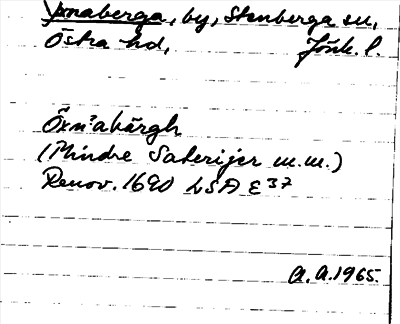 Ymnaberga, by, Stenberga sn,
Östra hd, Jönk. l.
Öxn?abärgh
(Mindre Saterijer m.m.)
Renov. 1690 LSA E 37
A.A. 1965